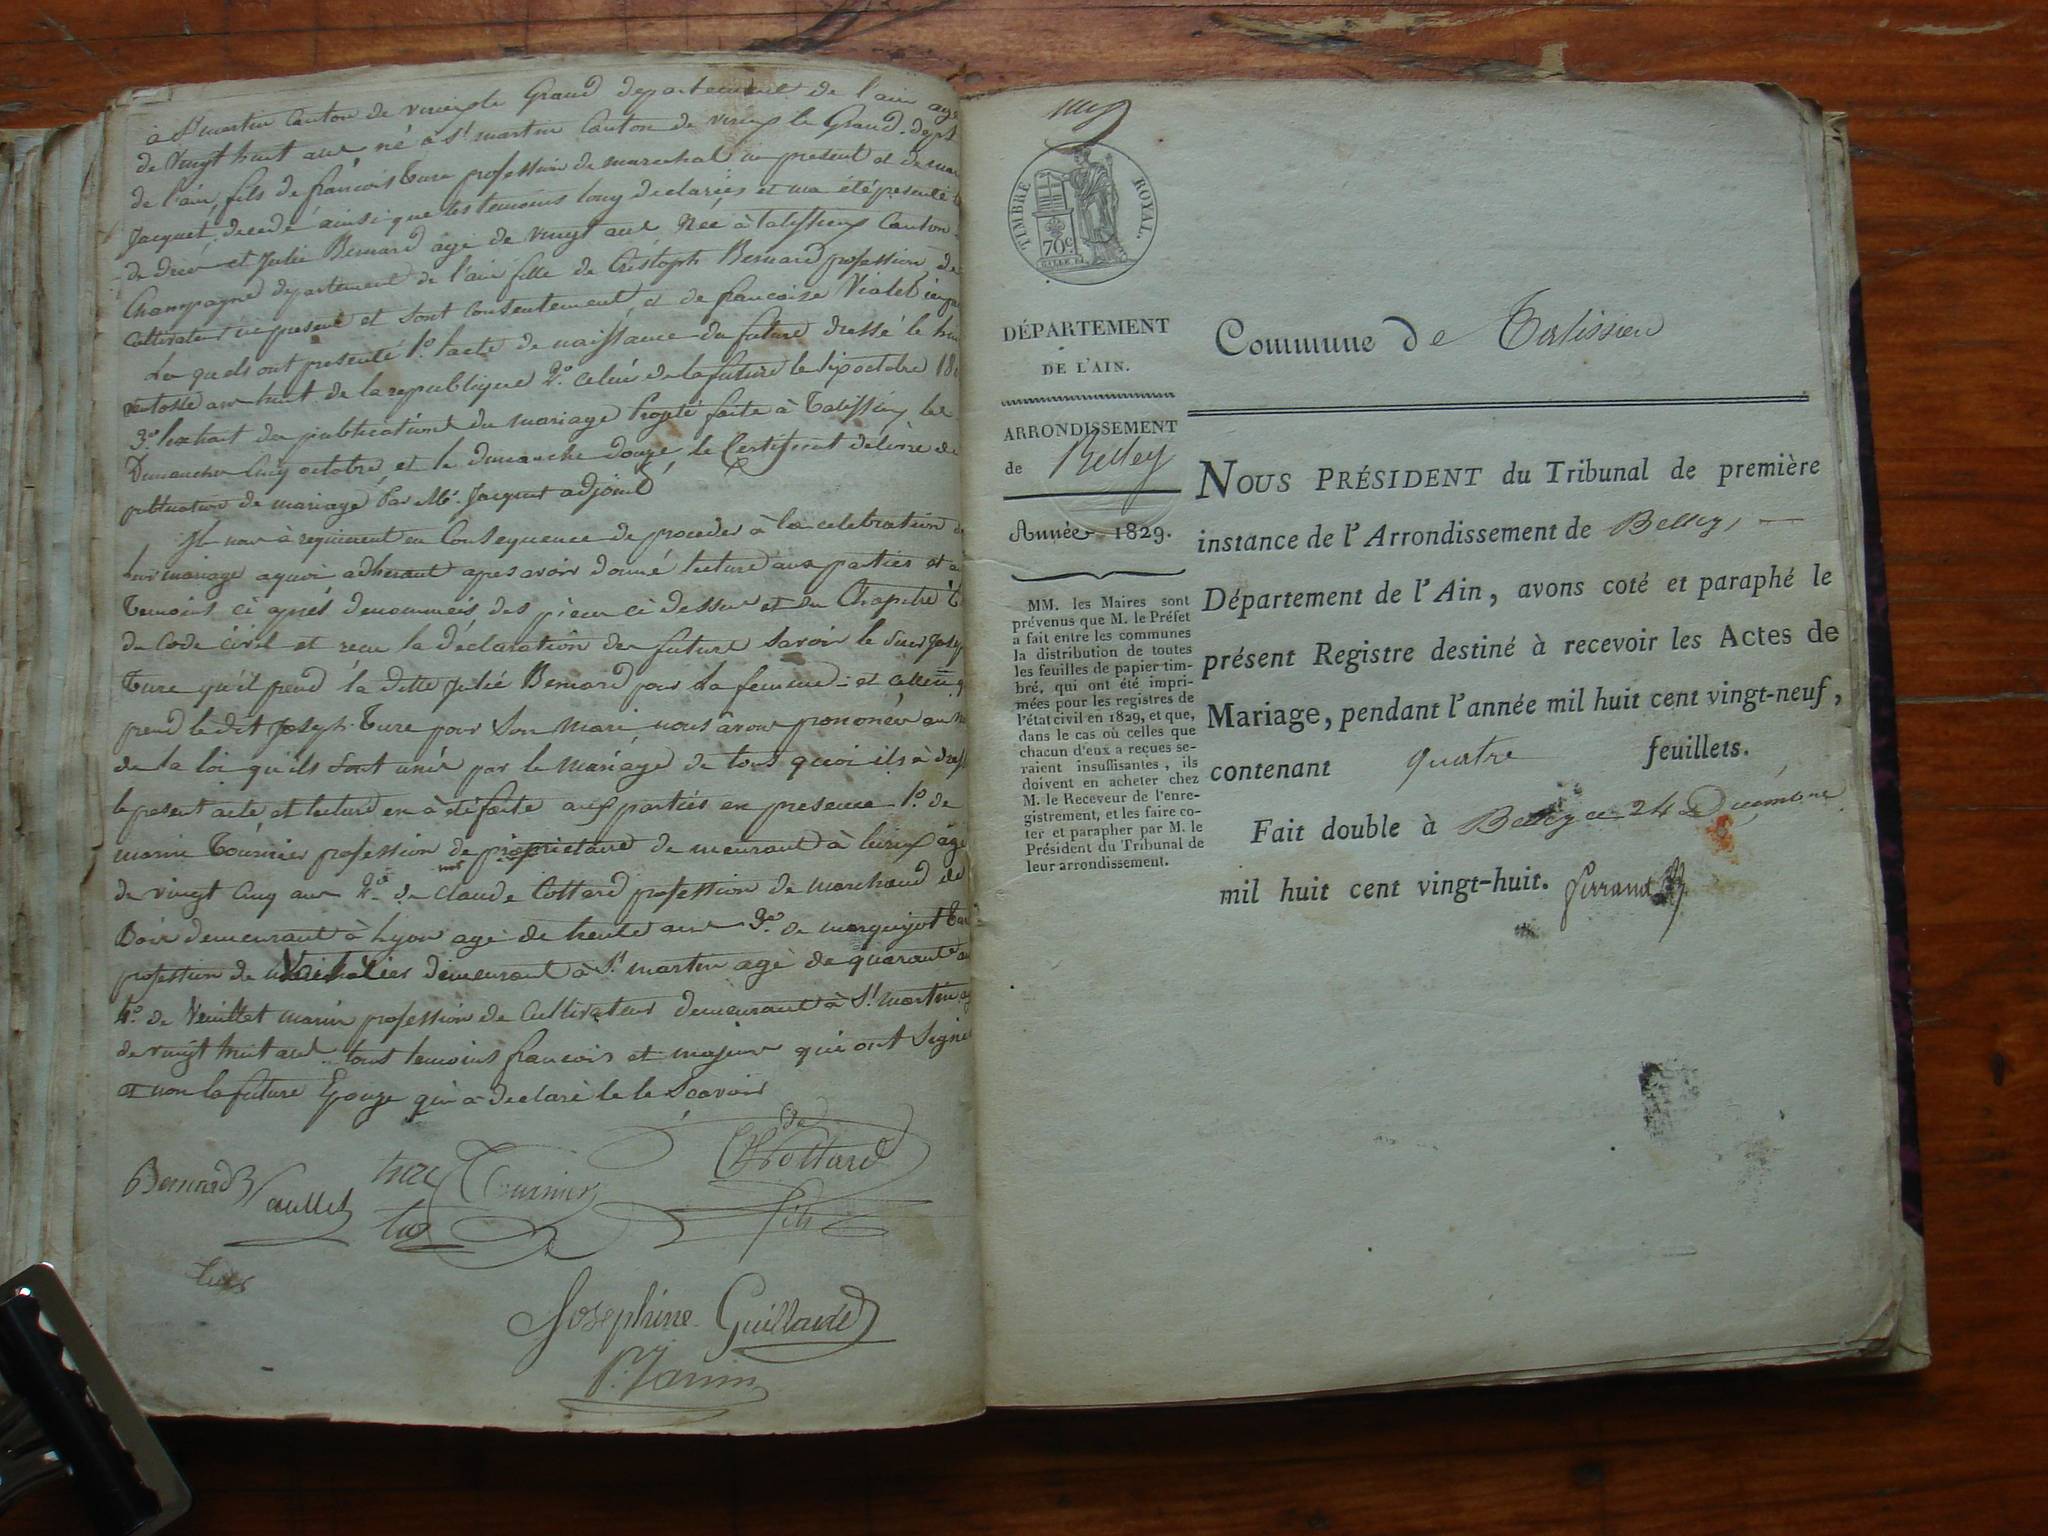 à St martin Canton de virieu le Grand departement de l'ain agé
de vingt huit ans né à St martin Canton de virieu le Grand dept
de l'ain, fils de francois Ture profession de marechal ici present et de
Jacquet, decedé ainsi que les temoins lony declarées et
et Julie Bernard agé de vingt ans Née à talissieu Canton
Champagne departement de l'ain fille de Cristoph Bernard profession de
Cultivateur ici present et sont Consentement, et de francoise Violet
Le quels ont presenté 1o. lacte de naissance du future dressé le
ventosse an huit de la republique 2o. celui de la future le six octobre
3o. lextrait des publications du mariage Projeté faite à Talissieu les
Dimanches Cinq octobre, et le dimanche douze, le Certificat delivré de
publication de mariage Par Mr. Jacquet adjoint
Il nous à requierent en Consequence de proceder à la celebration
leur mariage ayant adherant apres avoir donné lecture aux parties et
Temoins ci aprés denommés des pieces ci dessus et du Chapitre
du Code Civil et recu la déclaration des future Savoir le sieur
Ture qu'il prend la ditte Julie Bernard pour La femme et
prend le dit Joseph Ture pour Son mari, nous avons prononcé au
de la loi qu'ils sont unis par le mariage de tous quoi
le present acte et lecture en à été faite aux parties en presence 1o. de
marin Tournier profession de propriétaire de meurant à agé
de vingt Cinq ans 2o. de claude Cottard profession de marchand de
Bois demeurant à Lyon agé de trente ans 3o. de
profession de demeurant à St martin agé de quarante
4o. de Veuillet marin profession de Cultivateur demeurant à St martin
de vingt huit ans tous temoins francois et majeurs qui ont Signé
et non la future Epouze qui à declaré le Scavoir
Bernard Veuillet ture Tournier Cottard
fils
Ture
Josephine Guillaud
P. Janin
TIMBRE ROYAL.
70c
DÉPARTEMENT
DE L'AIN.
ARRONDISSEMENT
de Belley
Année 1829.
MM. les Maires sont
prévenus que M. le Préfet
a fait entre les communes
la distribution de toutes
les feuilles de papier tim-
bré, qui ont été impri-
mées pour les registres de
l'état civil en 1829, et que,
dans le cas où celles que
chacun d'eux a reçues se-
raient insuffisantes, ils
doivent en acheter chez
M. le Receveur de l'enre-
gistrement, et les faire co-
ter et parapher par M. le
Président du Tribunal de
leur arrondissement.
Commune de Talissieu
NOUS PRÉSIDENT du Tribunal de première
instance de l'Arrondissement de Belley,
Département de l'Ain, avons coté et paraphé le
présent Registre destiné à recevoir les Actes de
Mariage, pendant l'année mil huit cent vingt-neuf,
contenant quatre feuillets.
Fait double à Belley ce 24 Décembre
mil huit cent vingt-huit.